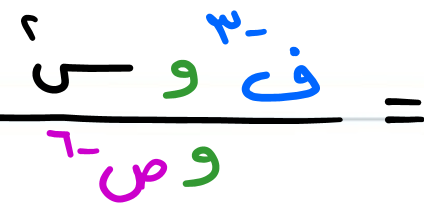 = ف⁻٣ و س٢
و ص⁻٦